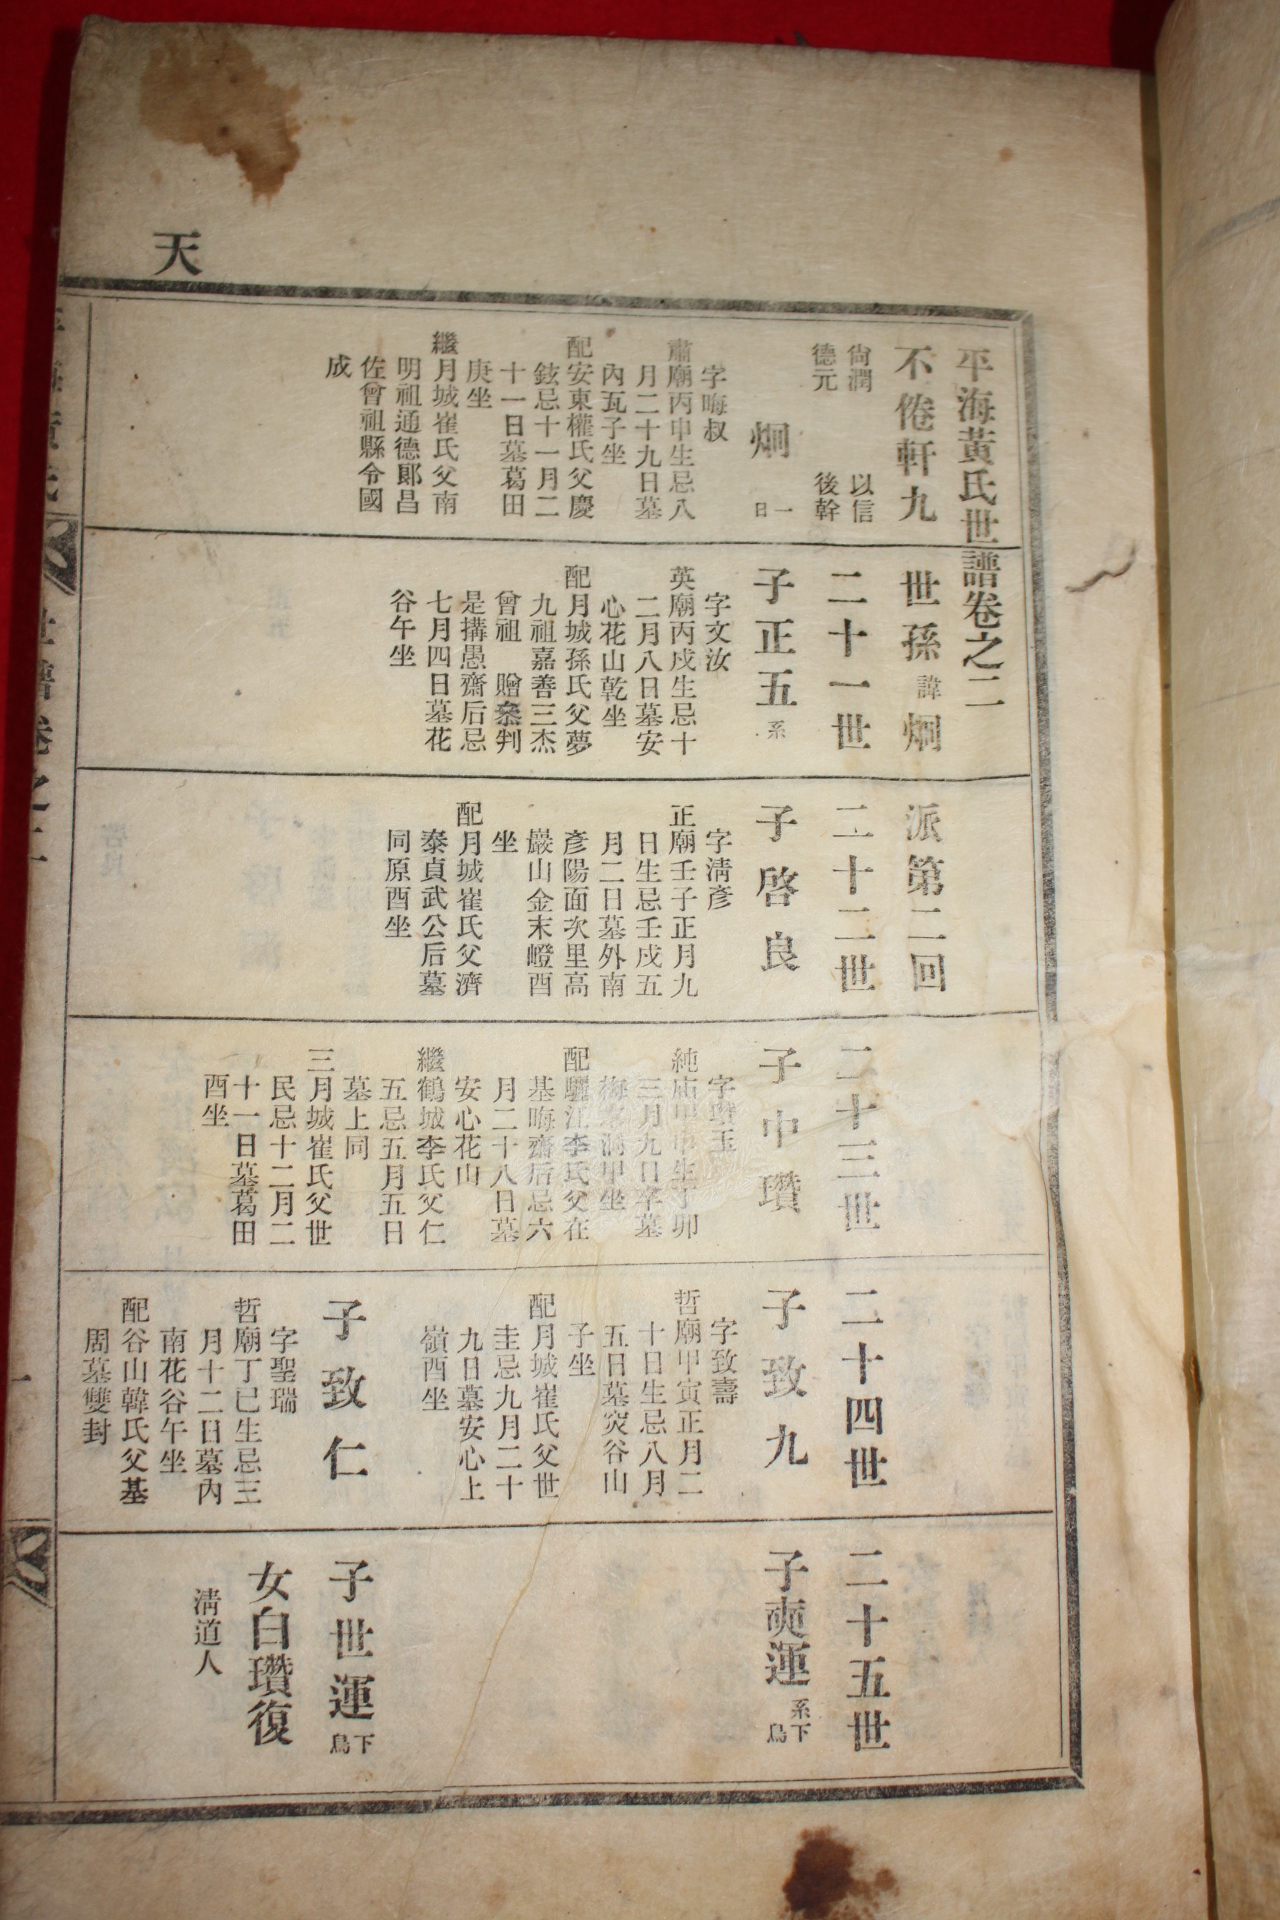 天
平海黃氏世譜卷之二
不倦軒九世孫諱炯派第二回
尙潤 以信
德元 後幹
炯 一日
字晦叔
肅廟丙申生忌八
月二十九日墓
內瓦子坐
配安東權氏父慶
鉉忌十一月二
十一日墓葛田
庚坐
繼月城崔氏父南
明祖通德郞昌
佐曾祖縣令國
成
二十一世
子正五 系
字文汝
英廟丙戌生忌十
二月八日墓安
心花山乾坐
配月城孫氏父夢
九祖嘉善三杰
曾祖 贈叅判
是搆愚齋后忌
七月四日墓花
谷午坐
二十二世
子啓良
字淸彥
正廟壬子正月九
日生忌壬戌五
月二日墓外南
彥陽面次里高
巖山金末嶝酉
坐
配月城崔氏父濟
泰貞武公后墓
同原酉坐
二十三世
子中瓚
字瓚玉
純庙甲申生丁卯
三月九日卒墓
甲坐
配驪江李氏父在
基晦齋后忌六
月二十八日墓
安心花山
繼鶴城李氏父仁
五忌五月五日
墓上同
三月城崔氏父世
民忌十二月二
十一日墓葛田
酉坐
二十四世
子致九
字致壽
哲廟甲寅正月二
十日生忌八月
五日墓突谷山
子坐
配月城崔氏父世
圭忌九月二十
九日墓安心上
嶺酉坐
子致仁
字聖瑞
哲廟丁巳生忌三
月十二日墓內
南花谷午坐
配谷山韓氏父基
周墓雙封
二十五世
子奭運 系下鳥
子世運 下鳥
女白瓚復
淸道人
世譜卷之二
一